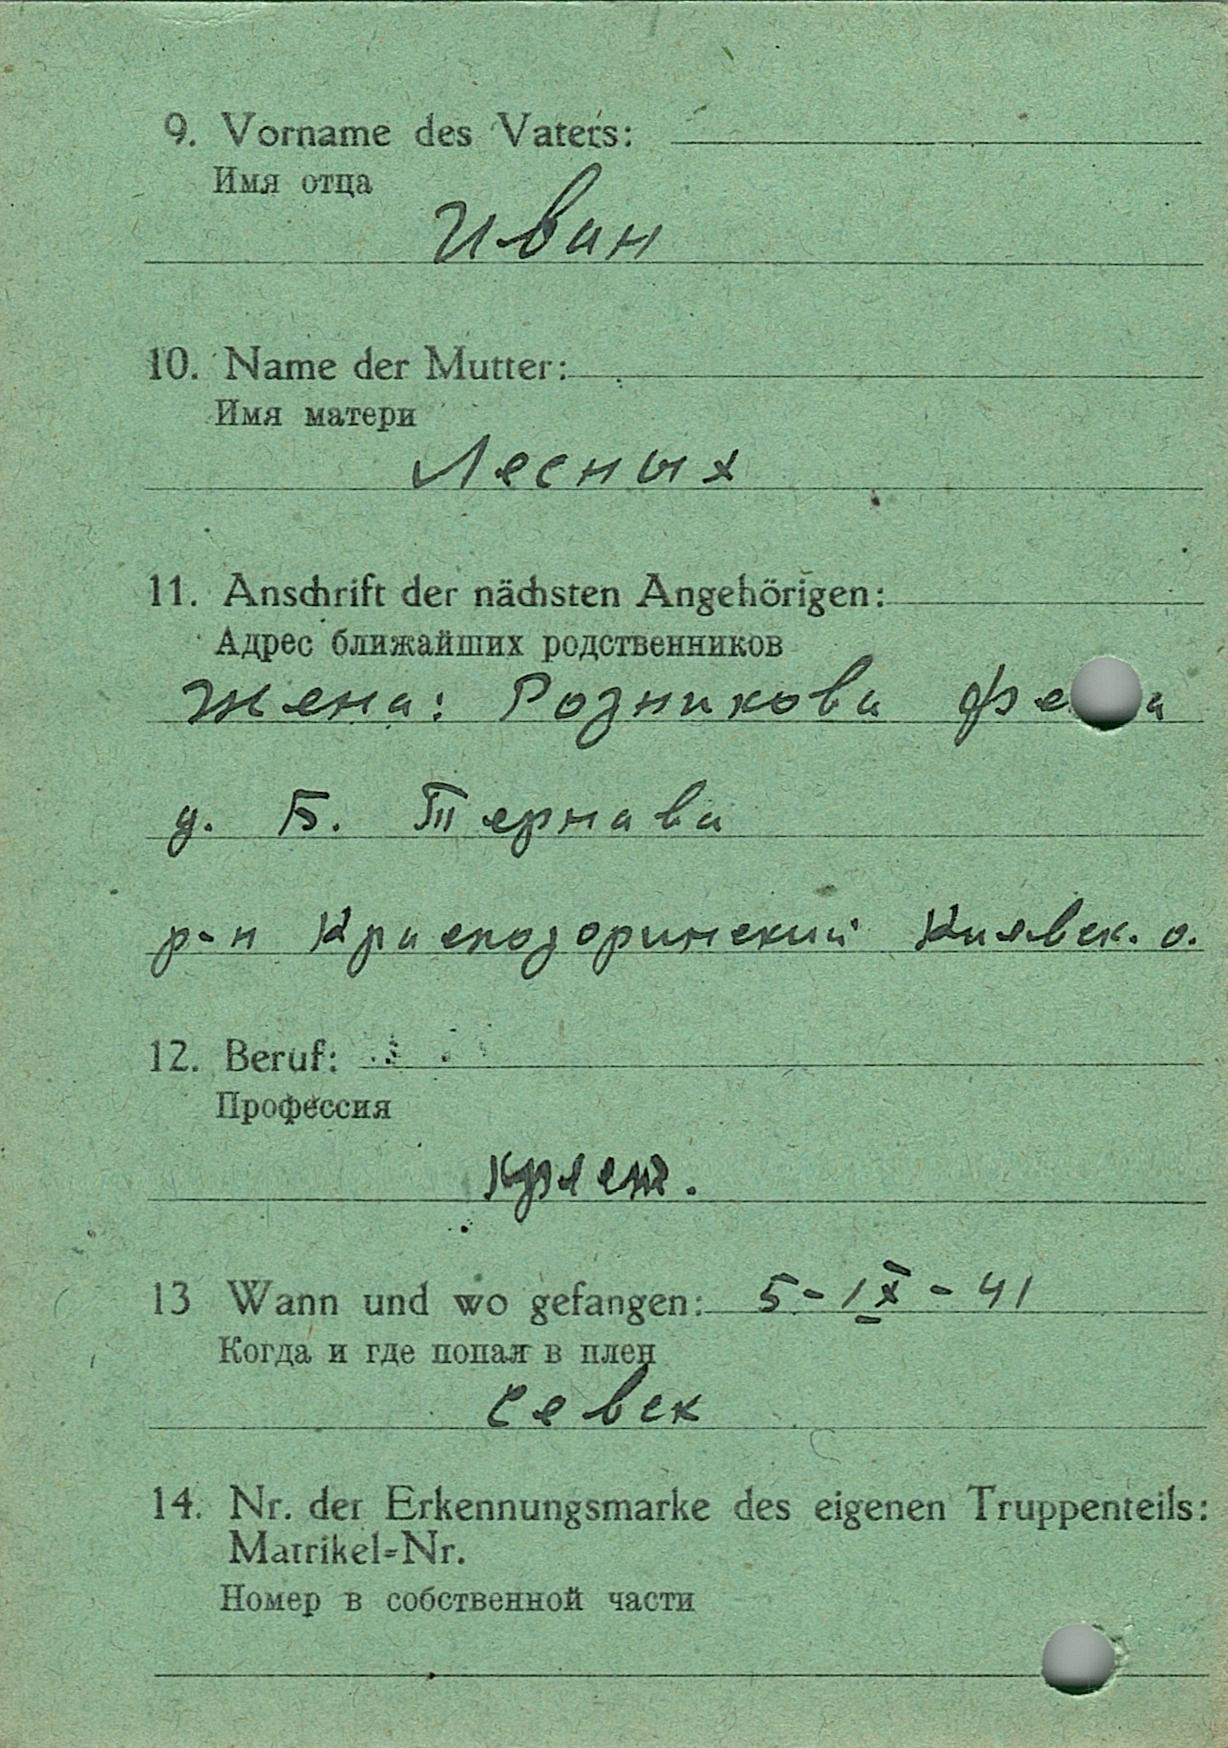 9. Vorname des Vaters:
Имя отца
Иван
10. Name der Mutter:
Имя матери
Лесных
11. Anschrift der nächsten Angehörigen:
Адрес ближайших родственников
Жена: Розникова
д. Б. Тернава
р-н Краснозоринский Киевск. о.
12. Beruf:
Профессия
крест.
13 Wann und wo gefangen: 5-IX-41
Когда и где попал в плен
Севск
14. Nr. der Erkennungsmarke des eigenen Truppenteils:
Matrikel=Nr.
Номер в собственной части